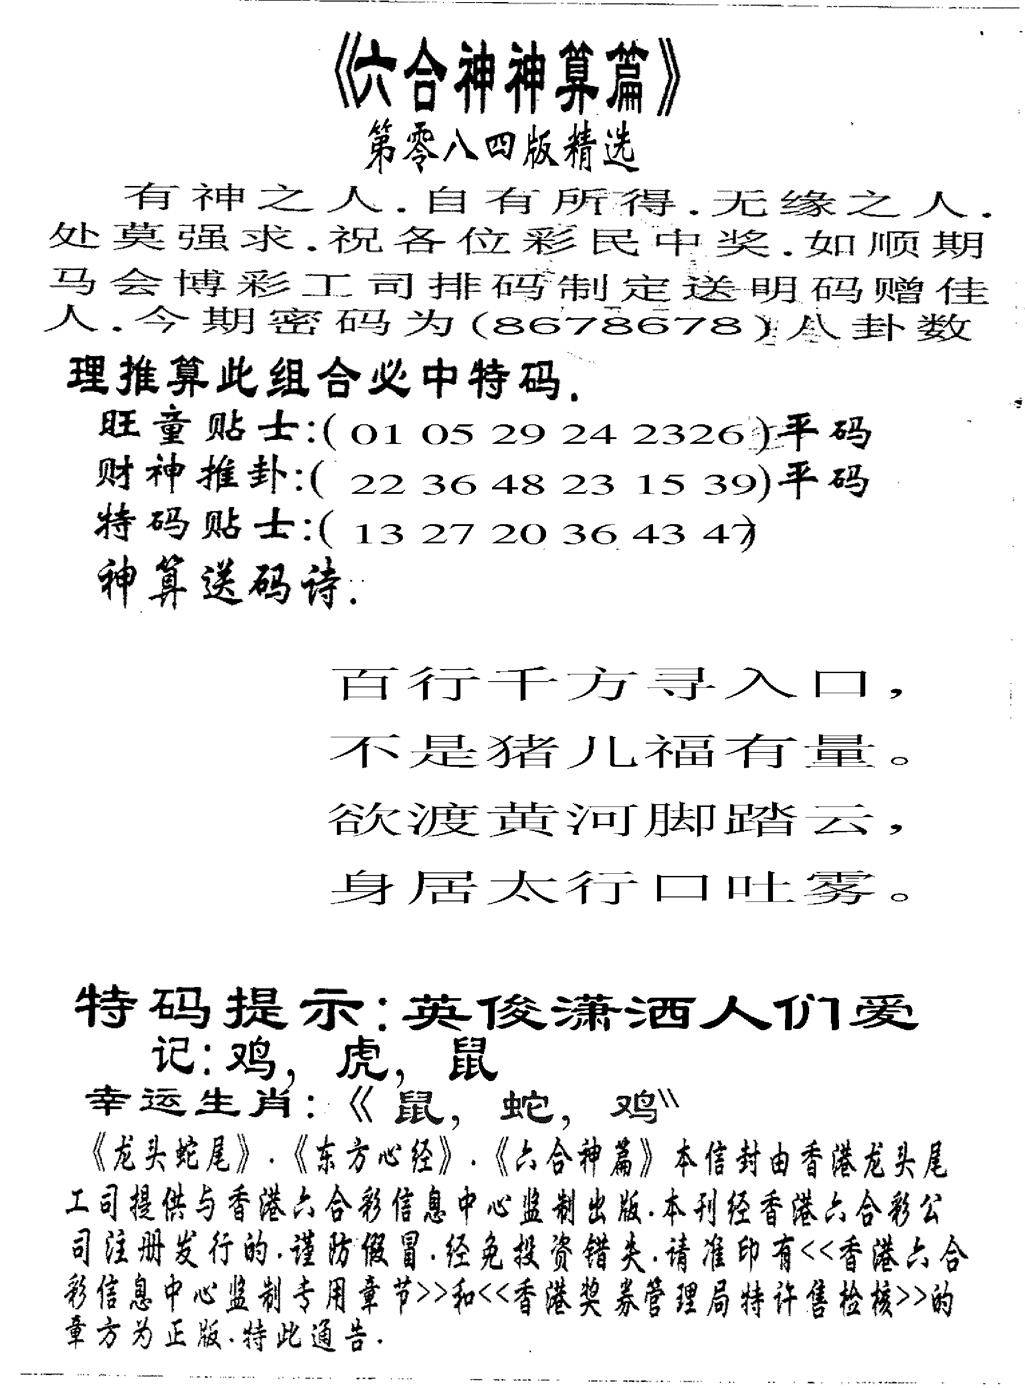 《六合神神算篇》
第零八四版精选
有神之人.自有所得.无缘之人.
处莫强求.祝各位彩民中奖.如顺期
马会博彩工司排码制定送明码赠佳
人.今期密码为(8678678)八卦数
理推算此组合必中特码.
旺童贴士:( 01 05 29 24 2326 )平码
财神推卦:( 22 36 48 23 15 39)平码
特码贴士:( 13 27 20 36 43 47)
神算送码诗.
百行千方寻入口,
不是猪儿福有量。
欲渡黄河脚踏云,
身居太行口吐雾。
特码提示:英俊潇洒人们爱
记:鸡,虎,鼠
幸运生肖:《鼠,蛇,鸡》
《龙头蛇尾》.《东方心经》.《六合神篇》本信封由香港龙头尾
工司提供与香港六合彩信息中心监制出版.本刊经香港六合彩公
司注册发行的.谨防假冒.经免投资错失.请准印有<<香港六合
彩信息中心监制专用章节>>和<<香港奖券管理局特许售检核>>的
章方为正版.特此通告.